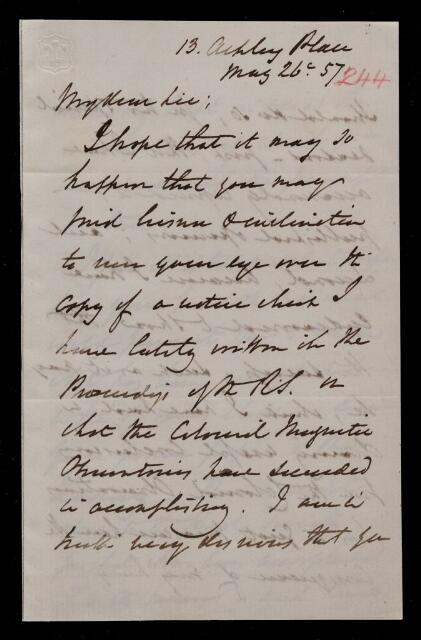 13. Ashley Place
May 26th. 57
244
My dear Sir;
I hope that it may so
happen that you may
find leisure & inclination
to run your eye over the
copy of a notice which I
have lately written in the
Proceedings of the R.S. on
what the Colonial Magnetic
Observatories have succeeded
in accomplishing. I am in
truth very desirous that you